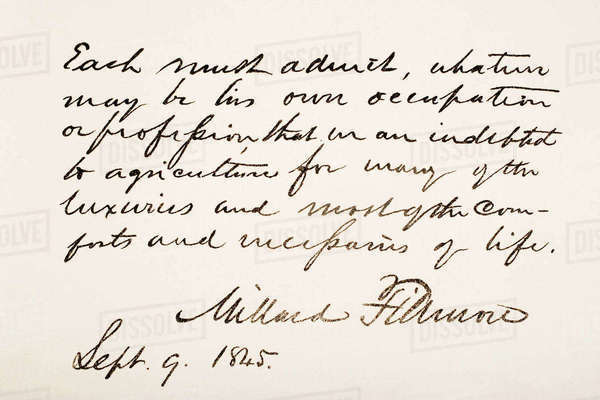 Each must admit, whatever
may be his own occupation
or profession, that we are indebted
to agriculture for many of the
luxuries and most of the com-
forts and necessaries of life.
Millard Fillmore
Sept. 9. 1845.
DISSOLVE